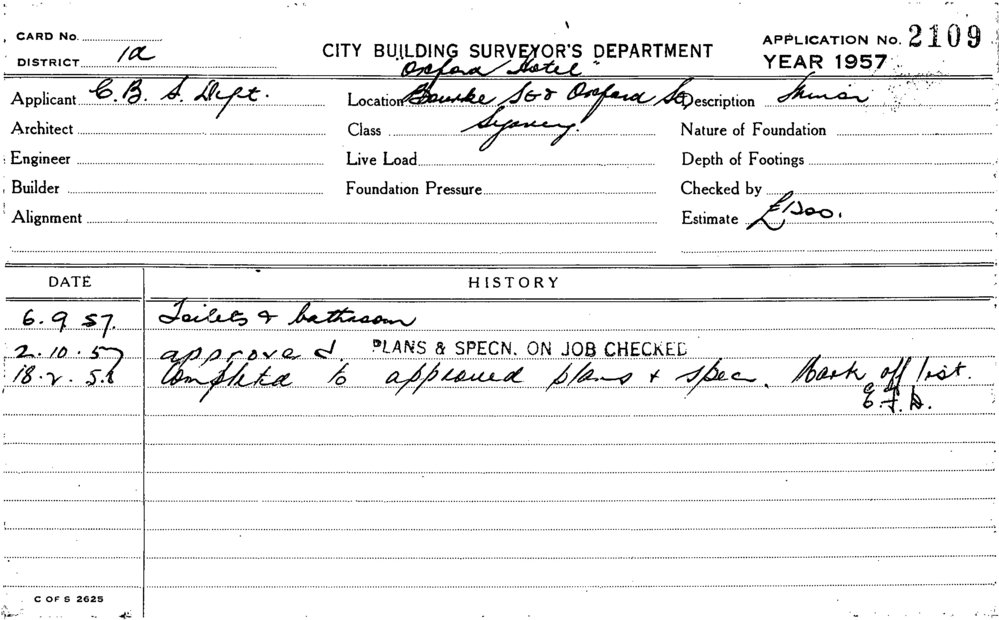 CARD No.
DISTRICT 1a
CITY BUILDING SURVEYOR'S DEPARTMENT
APPLICATION No. 2109
YEAR 1957
"Oxford Hotel"
Applicant C. B. S. Dept.
Location Bourke St & Oxford St
Description Minor
Architect
Class Sydney.
Nature of Foundation
Engineer
Live Load
Depth of Footings
Builder
Foundation Pressure
Checked by
Alignment
Estimate £1200.
DATE HISTORY
6.9.57. Toilets & bathroom
2.10.57 approved. PLANS & SPECN. ON JOB CHECKED
18.2.58 Completed to approved plans & spec. Mark off list.
E.J.D.
C OF S 2625